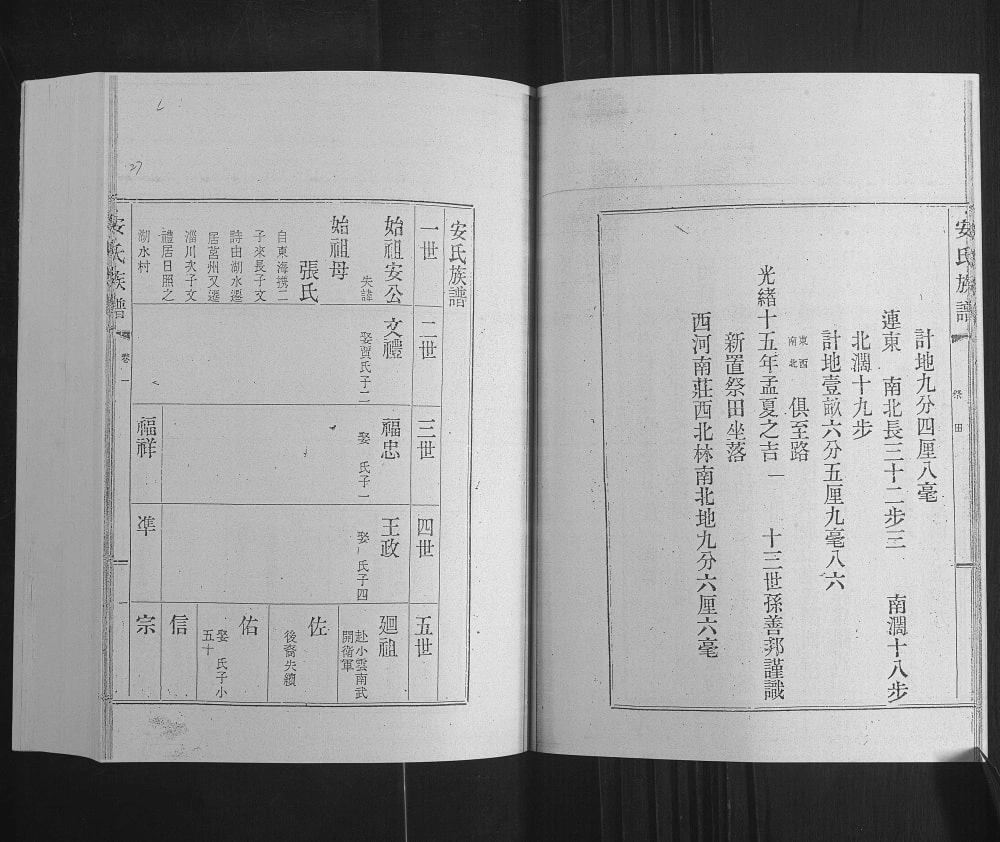 安氏族譜
祭田
計地九分四厘八毫
連東 南北長三十二步三 南濶十八步
北濶十九步
計地壹畝六分五厘九毫八六
東西
南北
俱至路
光緒十五年孟夏之吉一 十三世孫善邦謹識
新置祭田坐落
西河南莊西北林南北地九分六厘六毫
安氏族譜
一世
始祖安公
失諱
始祖母
張氏
自東海携二
子來長子文
詩由湖水遷
居莒州又遷
淄川次子文
禮居日照之
湖水村
二世
文禮
娶賈氏子二
三世
福忠
娶 氏子一
福祥
四世
王政
娶 氏子四
準
五世
廻祖
赴小雲南武
開衛軍
佐
後裔失續
佑
娶 氏子小
五十
信
宗
安氏族譜
卷一
一
27